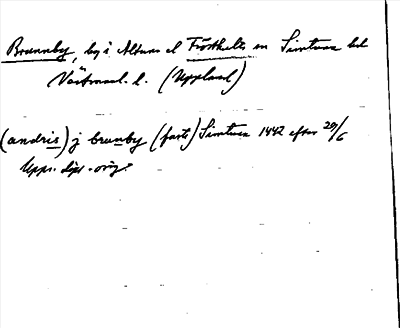 Brunnby, by i Altuna el Frösthults sn Simtuna hd
Västmanl. l. (Uppland)
(andris) j brunby (forts) Simtuna 1442 efter 20/6
Upps. dipl. orig.